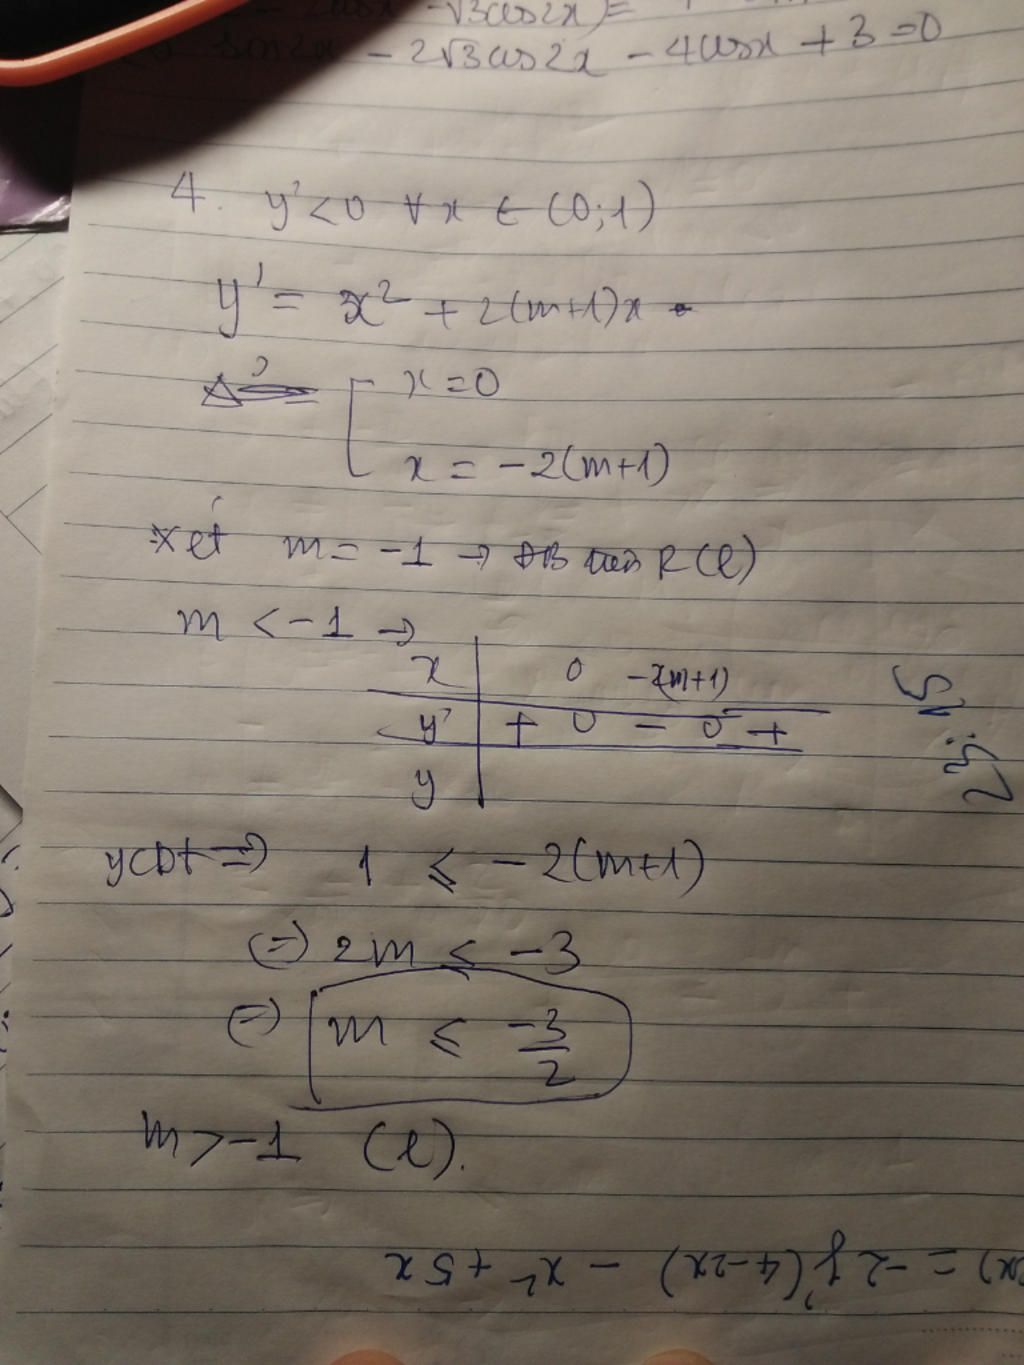 - 2cosx - √3cos2x) =
sin2x - 2√3cos2x - 4cosx + 3 = 0
4. y' < 0 ∀x ∈ (0;1)
y' = x² + 2(m+1)x
Δ' = [ x = 0
x = -2(m+1)
xét m = -1 → ĐB trên R (l)
m < -1 →
x | 0 -2(m+1)
y' | + 0 - 0 +
y |
ycbt => 1 ≤ -2(m+1)
(=) 2m ≤ -3
(=) m ≤ -3/2
m > -1 (l).
= -2f'(4-2x) - x² + 5x